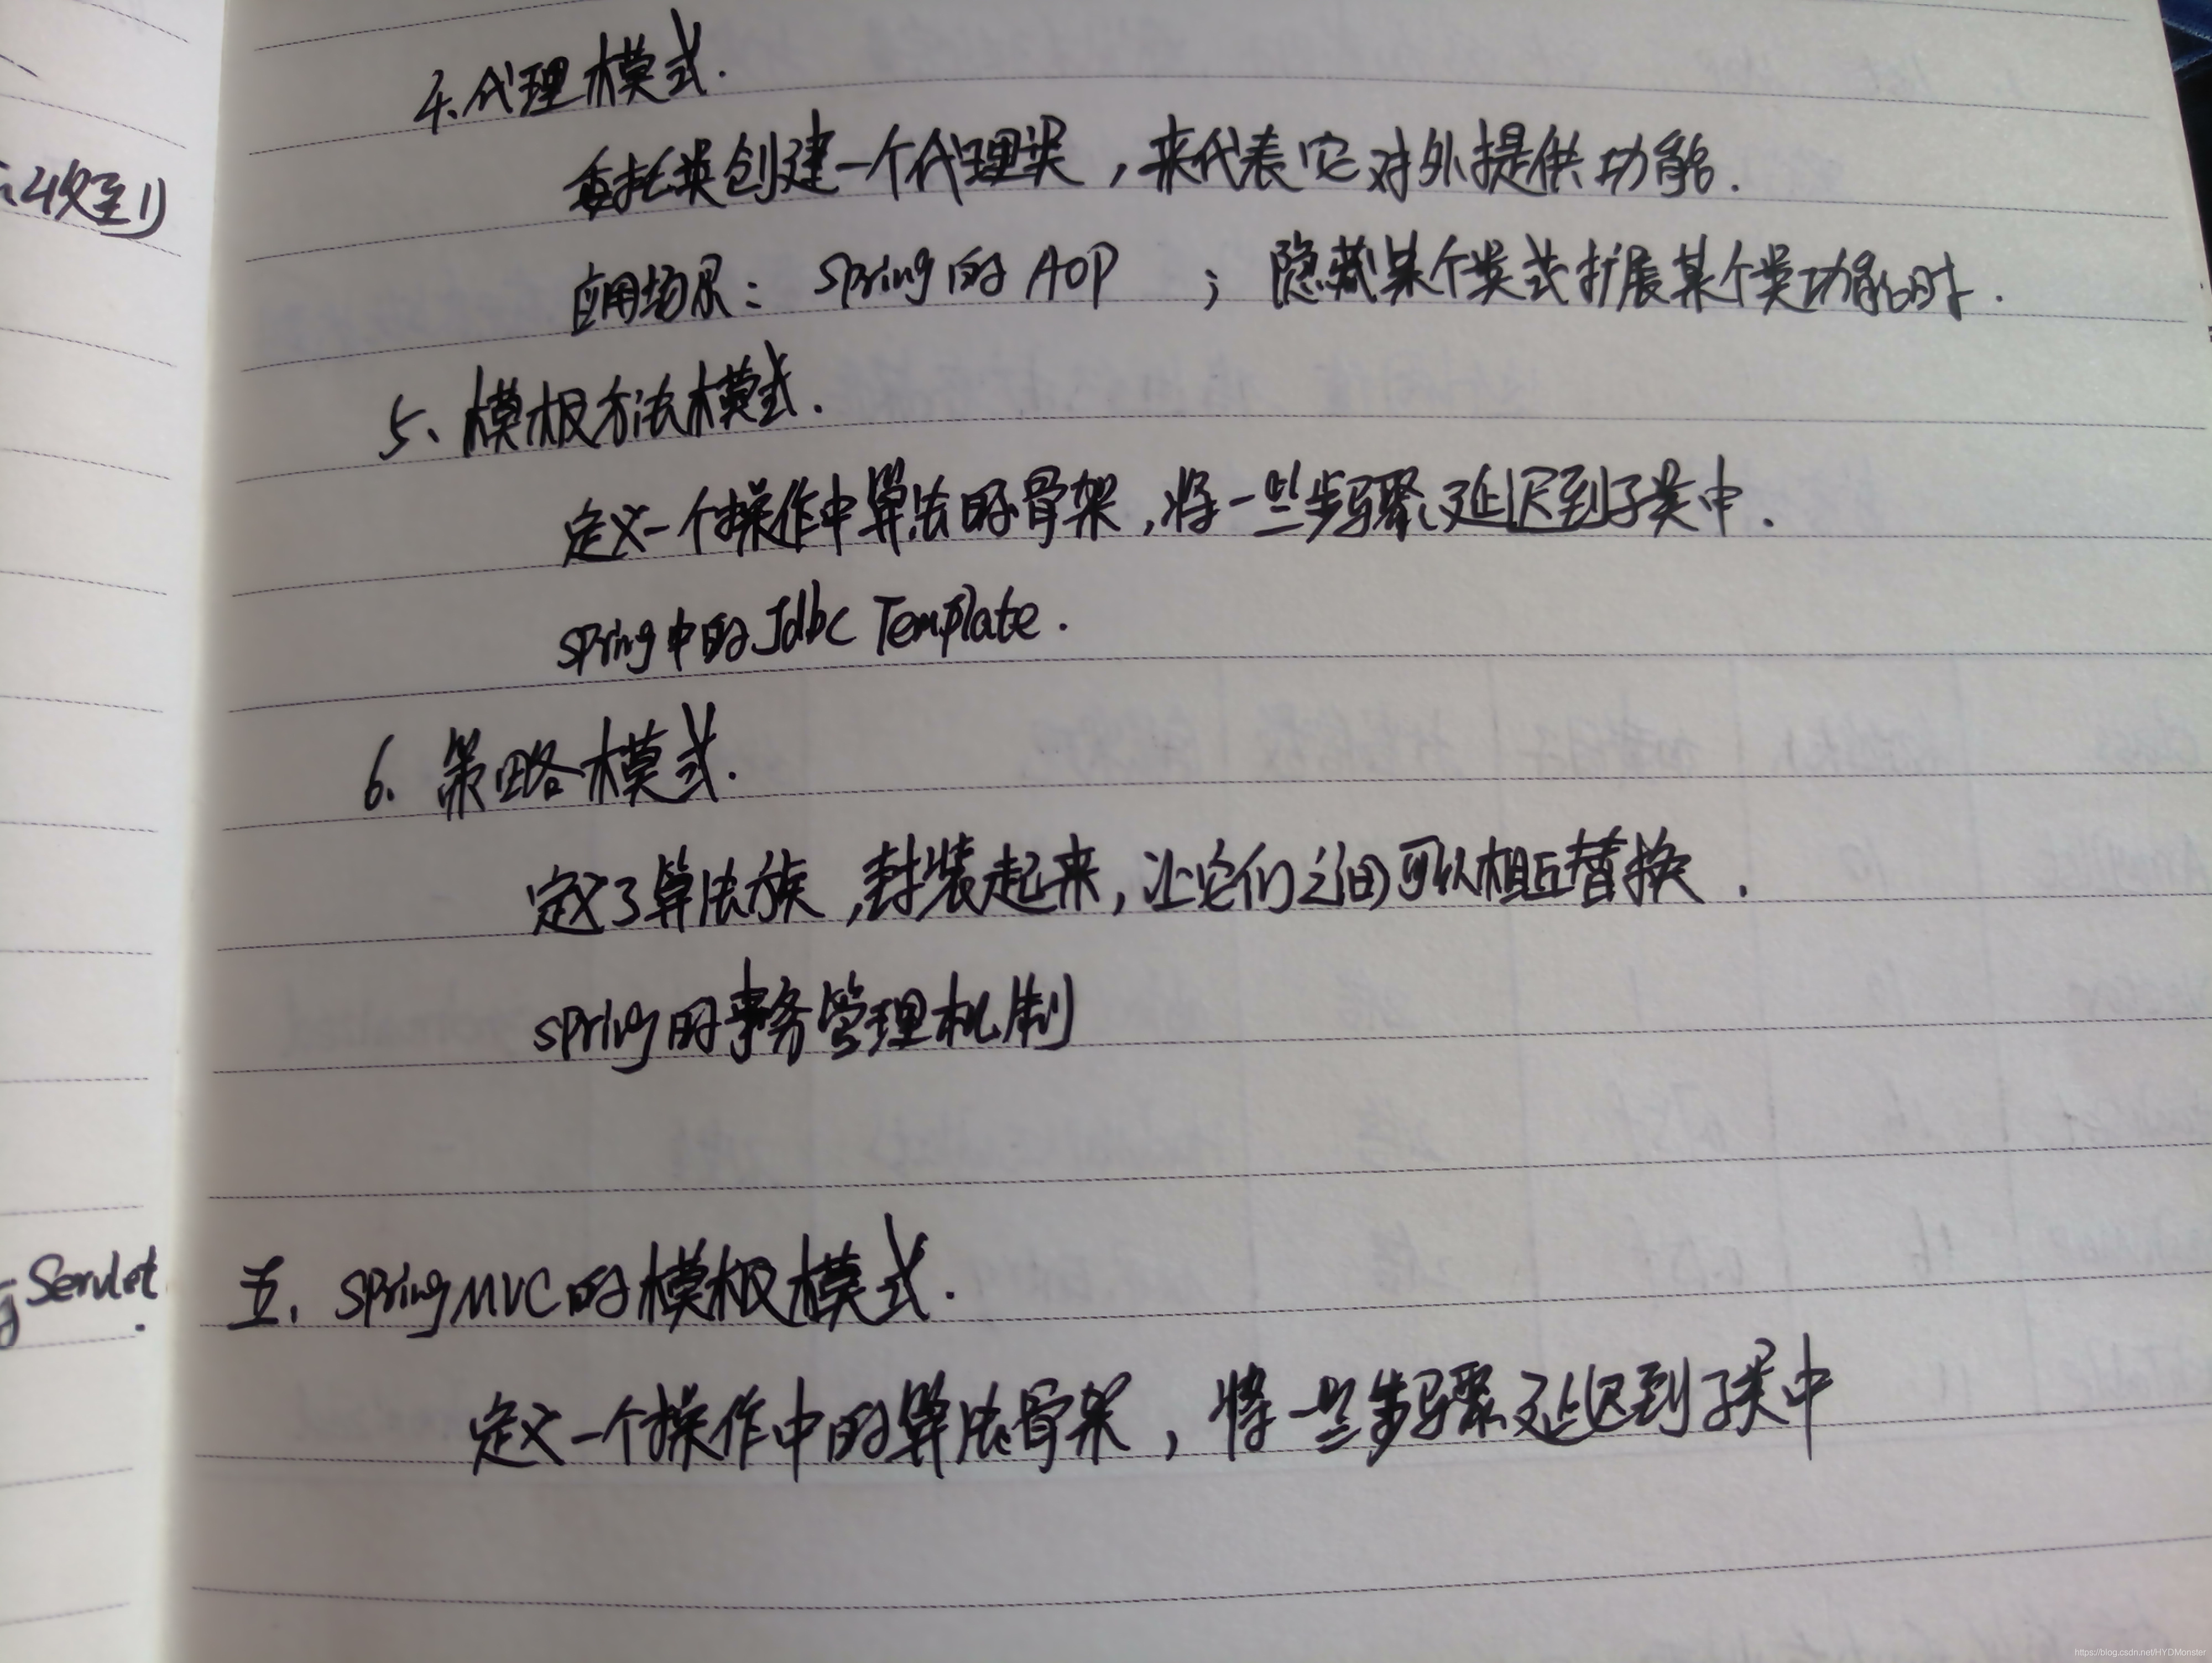 4.代理模式.
委托类创建一个代理类,来代表它对外提供功能.
应用场景: Spring的AOP ; 隐藏某个类或扩展某个类功能时.
5、模板方法模式.
定义一个操作中算法的骨架,将一些步骤延迟到子类中.
Spring中的Jdbc Template.
6. 策略模式.
定义了算法族,封装起来,让它们之间可以相互替换.
Spring的事务管理机制
五、SpringMVC的模板模式.
定义一个操作中的算法骨架,将一些步骤延迟到子类中
收到)
g Servlet.
https://blog.csdn.net/HYDMonster